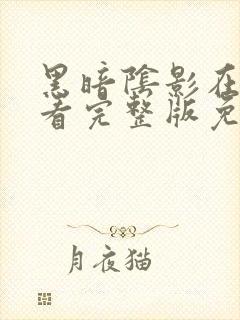 黑暗阴影在
看完整版免
月夜猫